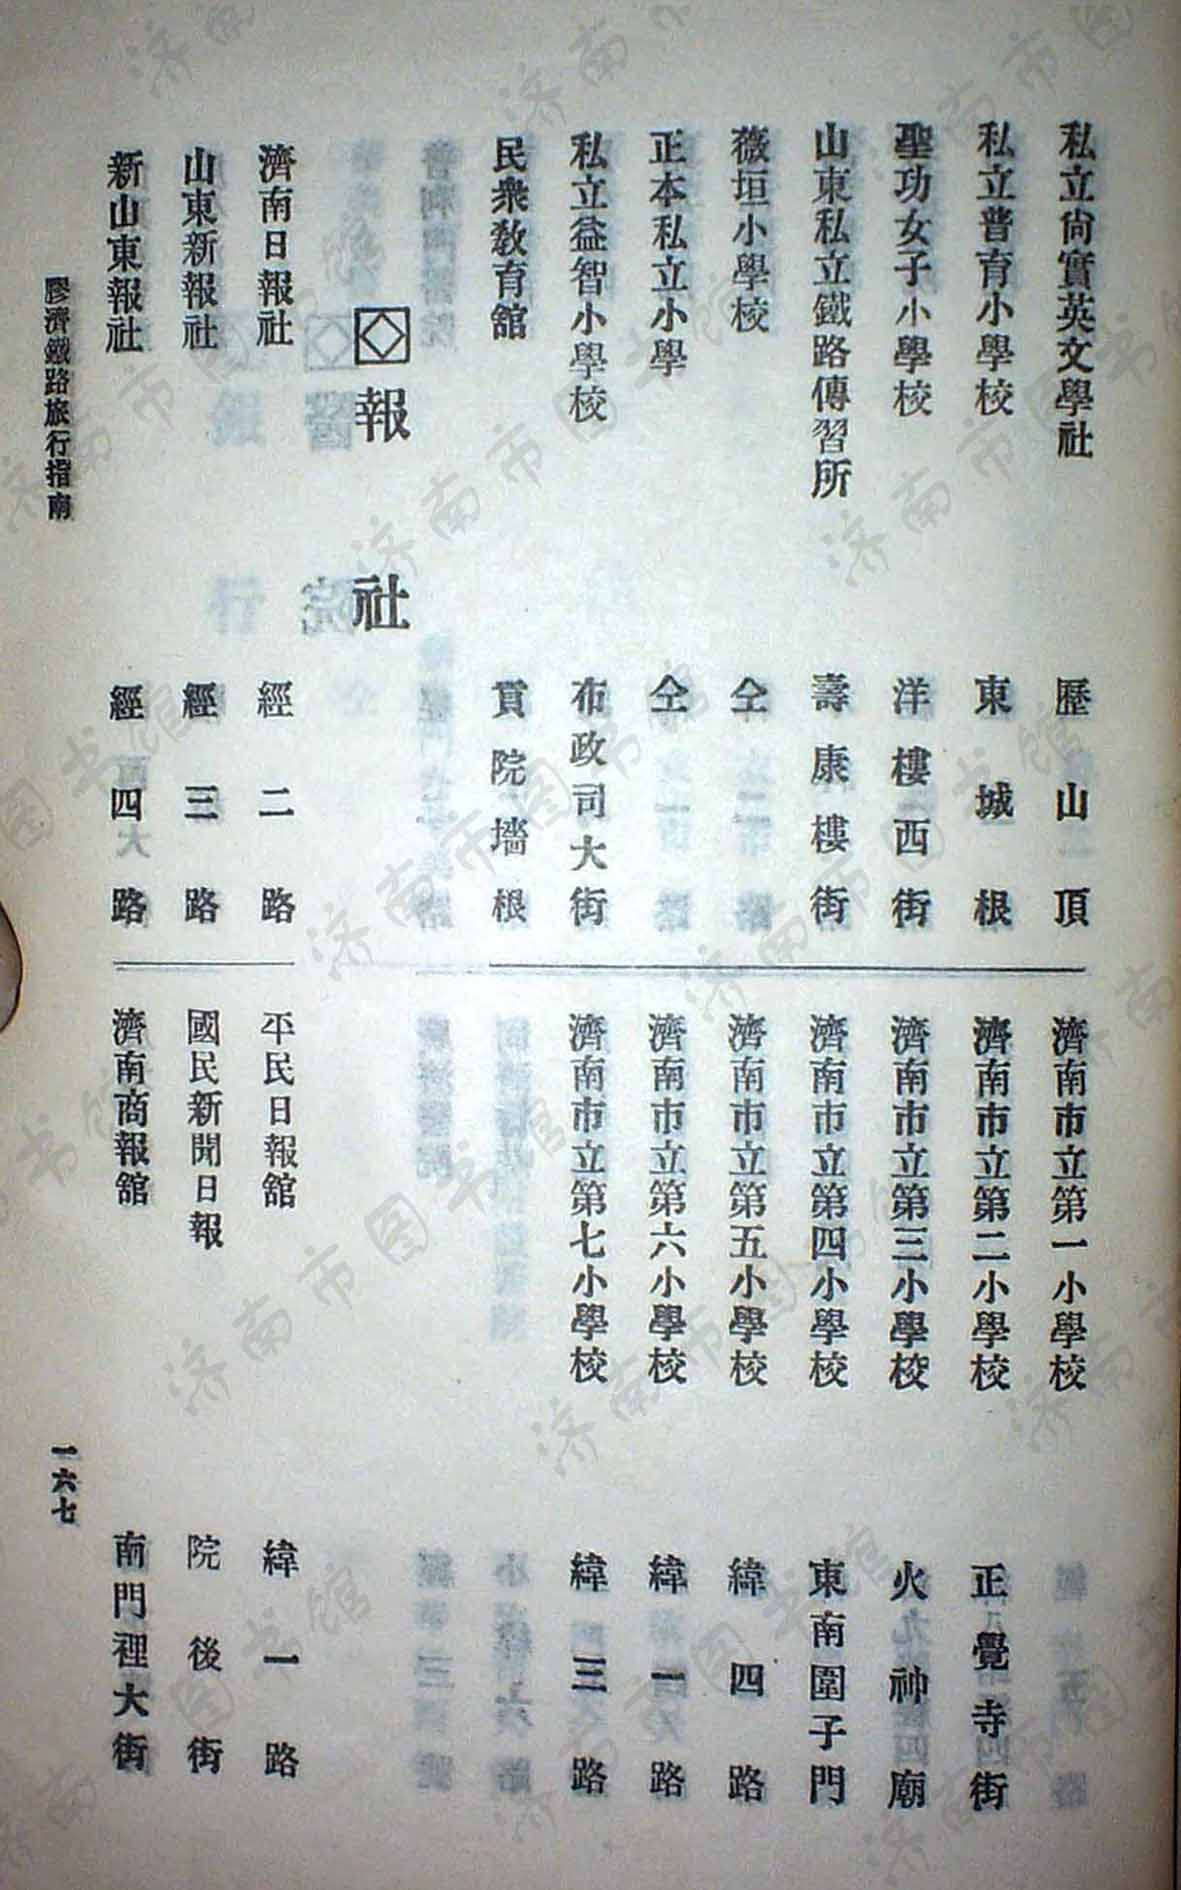 私立尙實英文學社　歷山頂
私立普育小學校　東城根
聖功女子小學校　洋樓西街
山東私立鐵路傳習所　壽康樓街
薇垣小學校　仝
正本私立小學　仝
私立益智小學校　布政司大街
民衆敎育館　貢院墻根
濟南市立第一小學校
濟南市立第二小學校　正覺寺街
濟南市立第三小學校　火神廟
濟南市立第四小學校　東南圍子門
濟南市立第五小學校　緯四路
濟南市立第六小學校　緯一路
濟南市立第七小學校　緯三路
報社
濟南日報社　經二路
山東新報社　經三路
新山東報社　經四路
平民日報館　緯一路
國民新聞日報　院後街
濟南商報館　南門裡大街
膠濟鐵路旅行指南
一六七
济南市图书馆